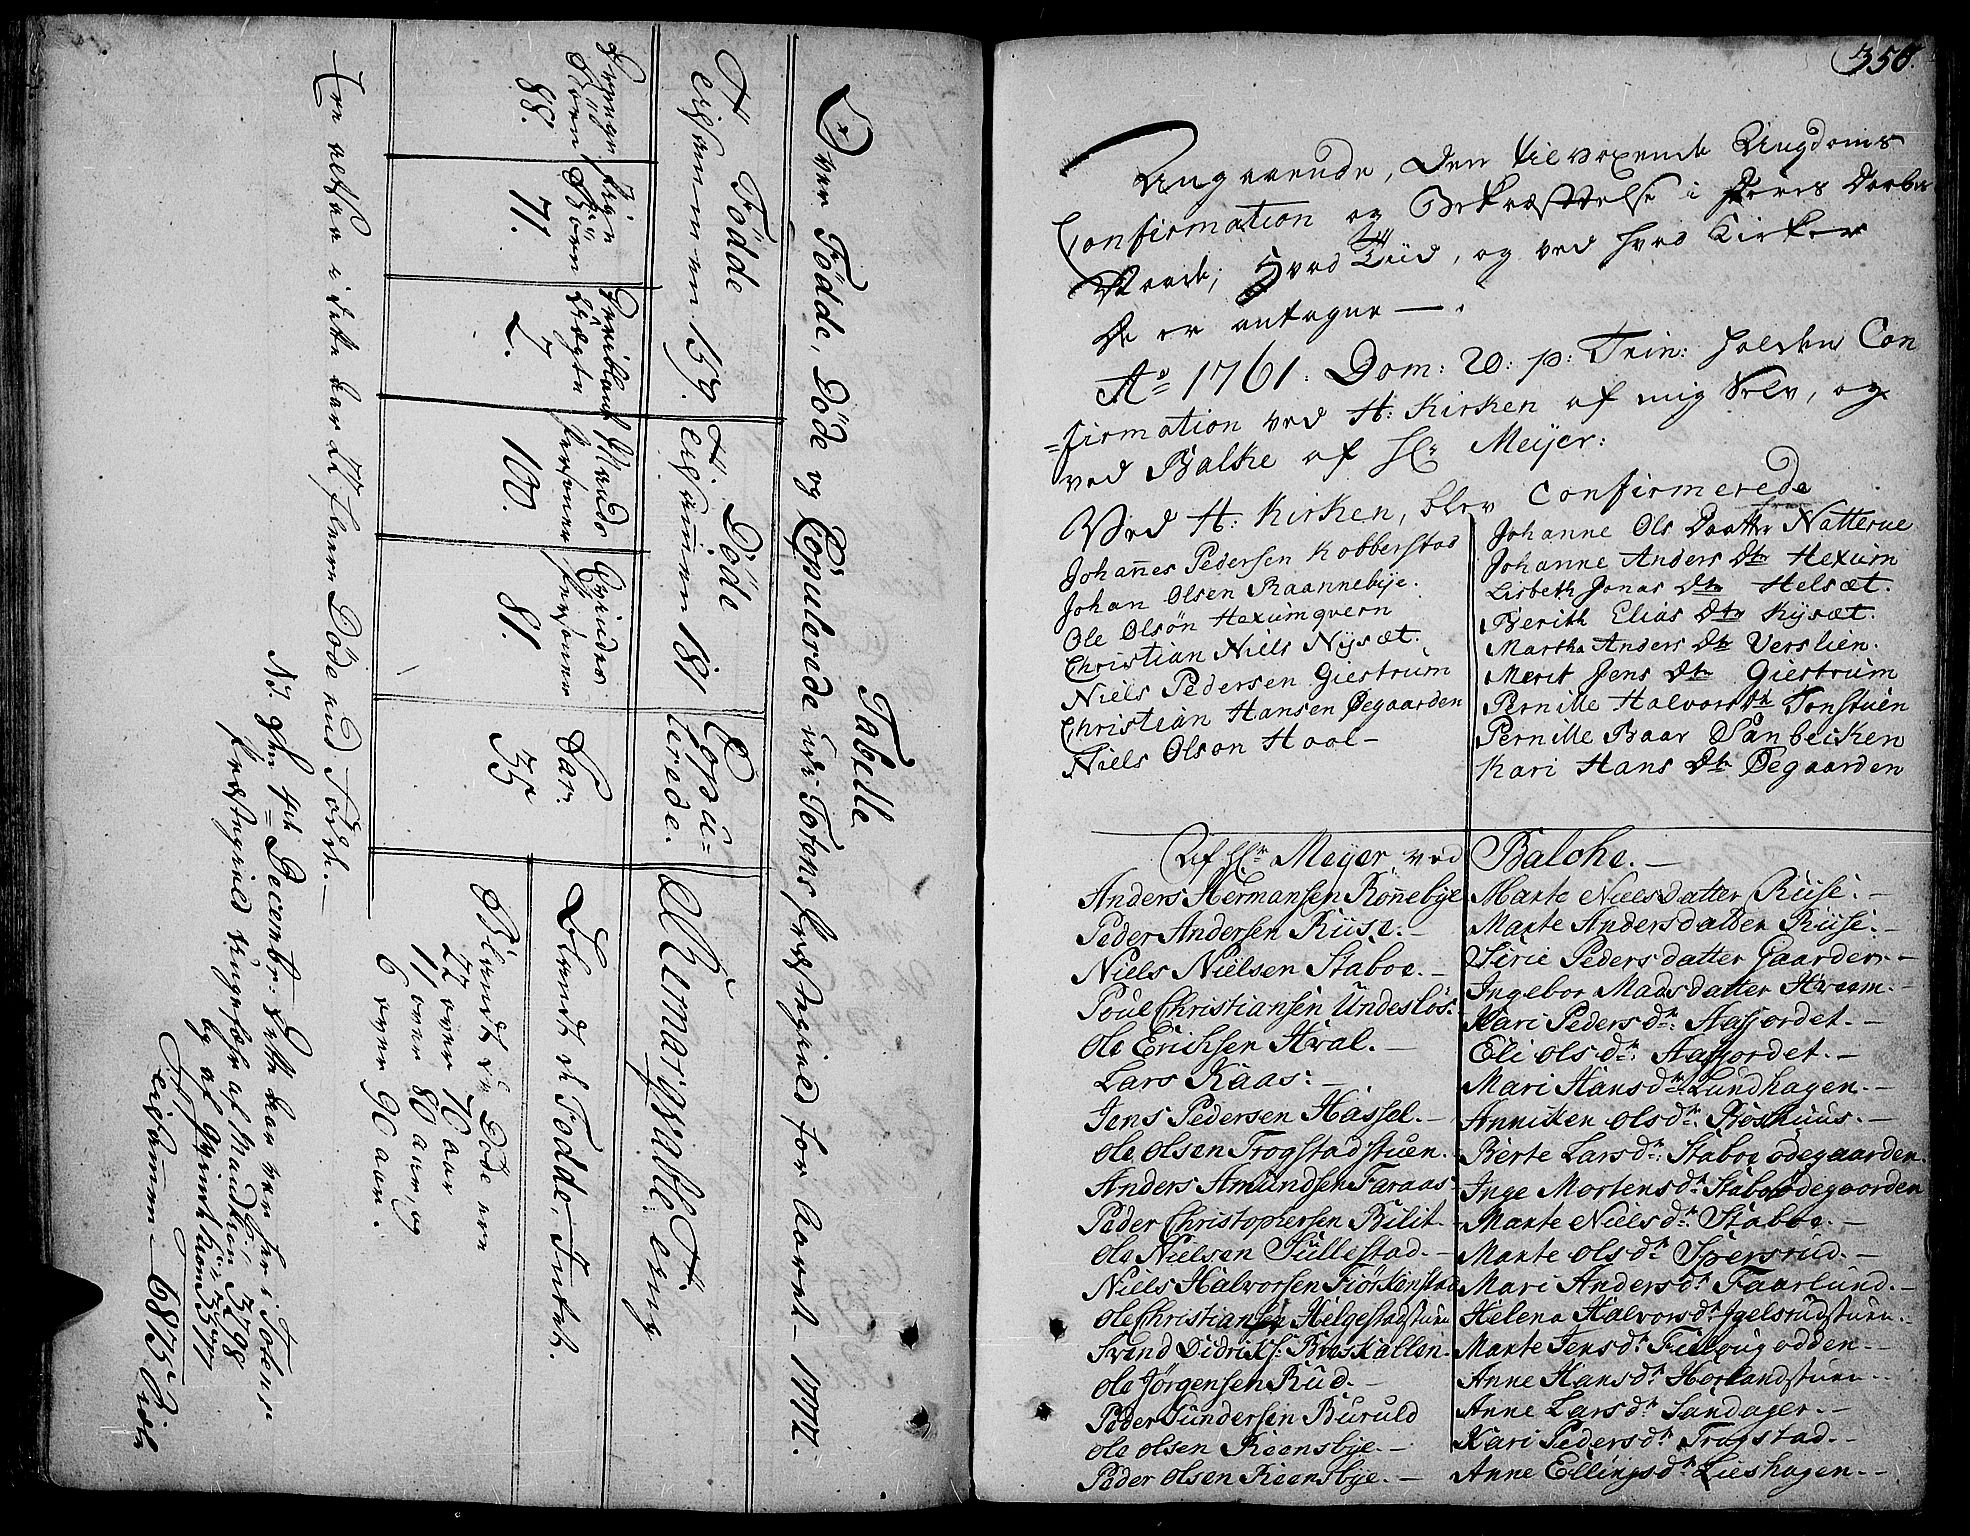 Tabelle
Over Fødde, Døde og Copulerede udi Totens Præstegield for Aaret 1772.
F. Fødde
tilsammen 159.
F. Døde
tilsammen 181
Copu=
lerede.
Allemargvable F. ting
Drenge
Børn
88.
Pige
Børn
71.
Deriblant
Uægte
7.
Mands
Personer
100.
Qvinder
Personer
81.
Par.
35
Blandt de Fødde, Intet.
Blandt de Døde ere
22 over 70 aar
11 over 80 aar, og
6 over 90 aar.
Ere altsaa i dette Aar 22 fleere Døde end Fødde.
NB. den 4de Decembr. dette Aar var her i Totens
Præstegield af Mandkiøn 3298
og af Qvindekiøn 3577
tilsammen 6875 Siæle
350.
Angaaende, den tilvoxende Ungdoms
Confirmation og Bekræftelse i deres Daabes
Naade, Hvad Tiid, og ved hvad Kirker
De er antagne —.
Ao 1761. Dom: 20. p: Trin: holden Con
=firmation ved H: Kirken af mig Selv, og
ved Balke af Hr Meijer:
Ved H: Kirken, blev Confirmerede
Johannes Pedersen Kobberstad
Johan Olsen Raannebye.
Ole Olsøn Hexumqvern
Christian Niels Nysæt.
Niels Pedersen Giestrum
Christian Hansen Øegaarden
Niels Olson Hoel -
Johanne Ols Daatter Natterue
Johanne Anders Dtr Hexum
Lisbeth Jonas Dtr Helsæt.
Berith Elias Dtr Kysæt.
Martha Anders Dtr Verslien.
Merit Jens Dtr Giestrum
Pernille Halvors Dtr Tonstuen
Pernille Baar Sanbecken
Kari Hans Dtr Øegaarden
Af Hr Meyer ved Balche. —
Anders Hermansen Rønebye
Peder Andersen Riise. —
Niels Nielsen Staboe. —
Poul Christiansen Undesløs. —
Ole Erichsen Hval. —
Lars Kaas: —
Jens Pedersen Hassel. —
Ole Olsen Trogstadstuen. —
Anders Amundsen Faraas. —
Peder Christophersen Bilit. —
Ole Nielsen Sullestad. —
Niels Halvorsen Fiørkenstad
Ole Christiansen Helgestadstuen
Svend Didriks: Braskallen. —
Ole Jørgensen Rud. —
Peder Gundersen Buruld
Ole Olsen Reensbye. —
Peder Olsen Reensbye. —
Marte Nielsdatter Riise. —
Marte Andersdatter Riise. —
Sirie Pedersdatter Gaarder. —
Ingebor Madsdatter Hveem. —
Kari Peders dr: Aasjordet. —
Eli Ols dr. Aasjordet. —
Mari Hans dr Lundhagen. —
Anniken Ols dr. Røshuus. —
Berte Lars dr: Staboe ødegaarden.
Inge Mortens dr Staboeødegaarden
Marte Niels dr. Staboe. —
Marte Ols dr Spersrud. —
Mari Anders dr Faarlund. —
Helena Halvors dr Igelsrudstuen. —
Marte Jens dr Fielvigodden. —
Anne Hans dr Horlandstuen —
Anne Lars dr. Sandager. —
Kari Peders dr Trogstad. —
Anne Ellings dr Lieshagen. —